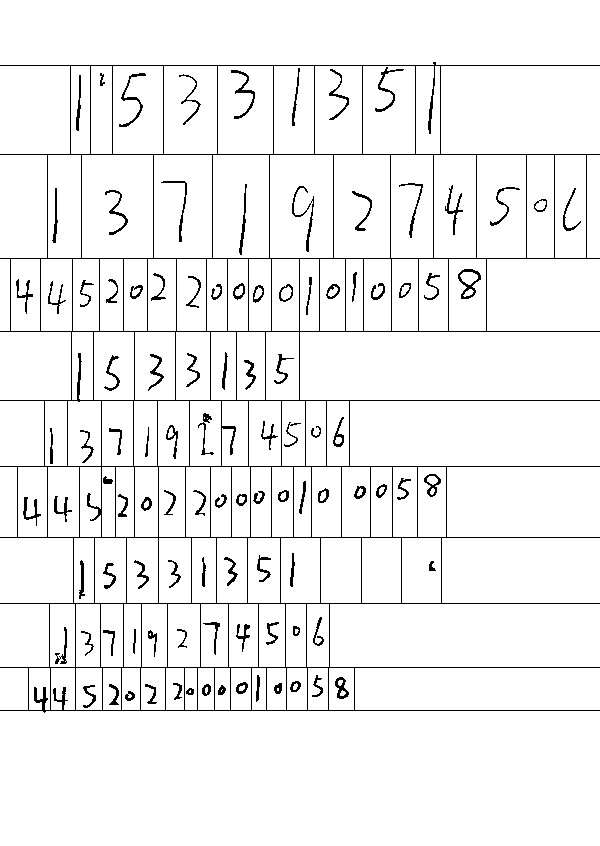 15331351
13719274506
445202200001010058
1533135
13719274506
4452022000010 0058
15331351
13719274506
4452022000010058